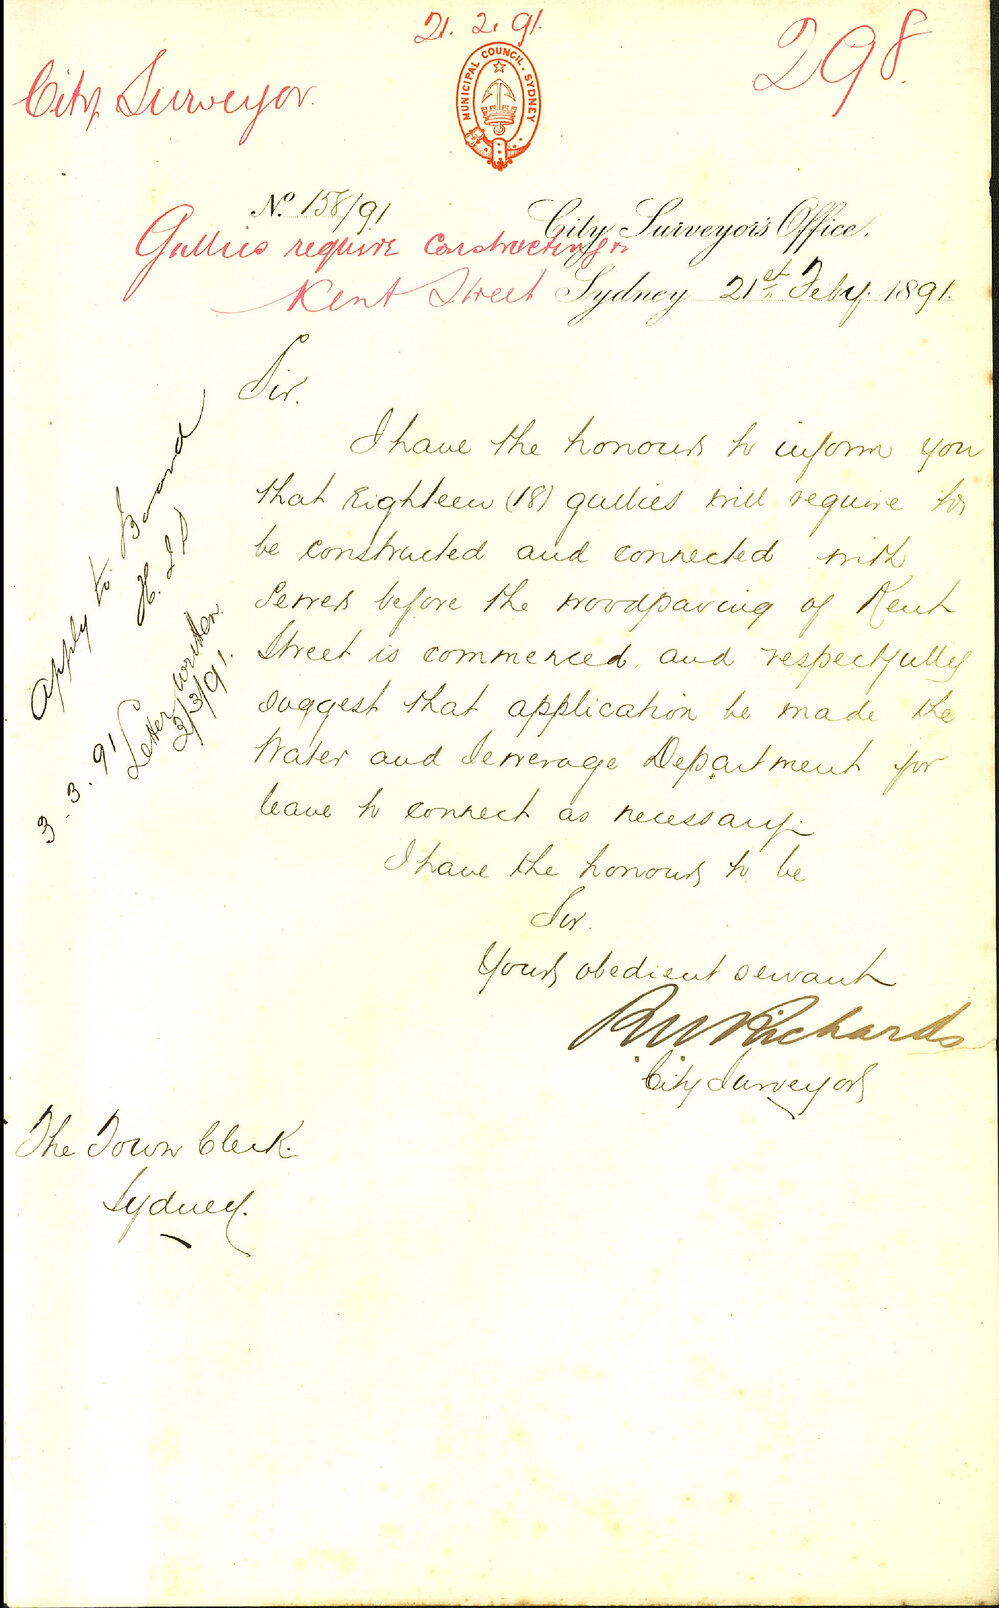 21. 2. 91.
298.
City Surveyor.
MUNICIPAL COUNCIL. SYDNEY
No. 158/91
City Surveyor's Office.
Gullies require constructing in
Kent Street
Sydney 21st Feby. 1891.
Sir.
I have the honour to inform you
that Eighteen (18) gullies will require to
be constructed and connected with
Sewers before the woodpaving of Kent
Street is commenced, and respectfully
suggest that application be made the
Water and Sewerage Department for
leave to connect as necessary.
I have the honour to be
Sir.
Your obedient servant
RW Richards
City Surveyor
The Town Clerk.
Sydney.
Apply to Board
3.3.91
Letter written
2/3/91.